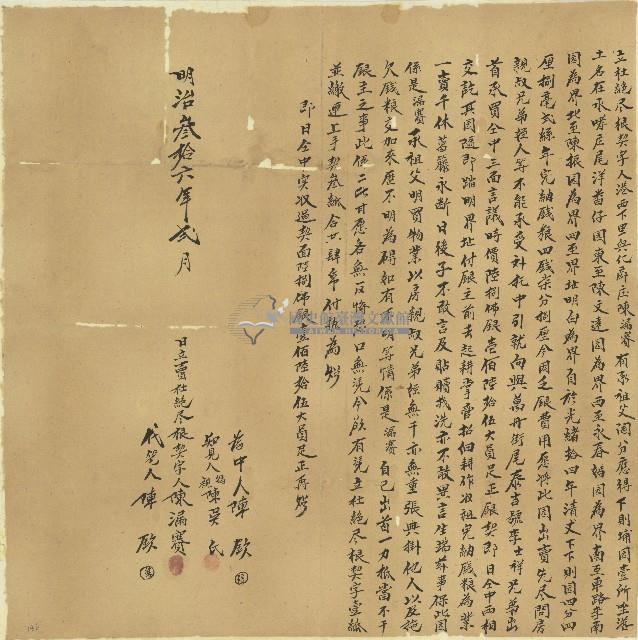 立杜絕尽根契字人港西下里興化廍庄陳漏賽有承祖父鬮分應得下則埔园壹所坐港
土名在水哮庄尾洋蕃仔园東至陳文達园為界西至永春

园為界南至車路李南
园為界北至陳振园為界四至界址明白為界自於光緒拾四年清丈下下則园四分四
厘捌毫弍絲年完納錢粮四錢柒分捌厘今因乏銀費用愿將此园出賣先尽問房
親叔兄弟侄人等不能承受外托中引就向與萬丹街尾泰吉號李士祥兄弟出
首承買仝中三面言議時價陸捌佛銀壹佰陸拾伍大員足正銀契即日仝中両相
交訖其园隨即踏明界址付銀主前去起耕掌管招佃耕作收租完納錢粮為業
一賣千休葛藤永斷日後子孫不敢言及貼贖找洗亦不敢異言生端等事保此园
係是漏賽承祖父明買物業以房親叔兄弟侄無干亦無重張典掛他人以及拖
欠錢粮交加來歷不明為碍如有不明等情係是漏賽自己出首一力抵當不干
銀主之事此係二比甘愿各無反悔口無憑今欲有憑立杜絕尽根契字壹紙
並繳連上手契叁紙合共肆帋付執為炤
即日仝中实收過契面陸捌佛銀壹佰陸拾伍大員足正再炤
明治叁拾六年弍月
為中人陳歐
知見人媽親陳吳氏
日立賣杜絕尽根契字人陳漏賽
代笔人陳歐
國史館臺灣文獻館